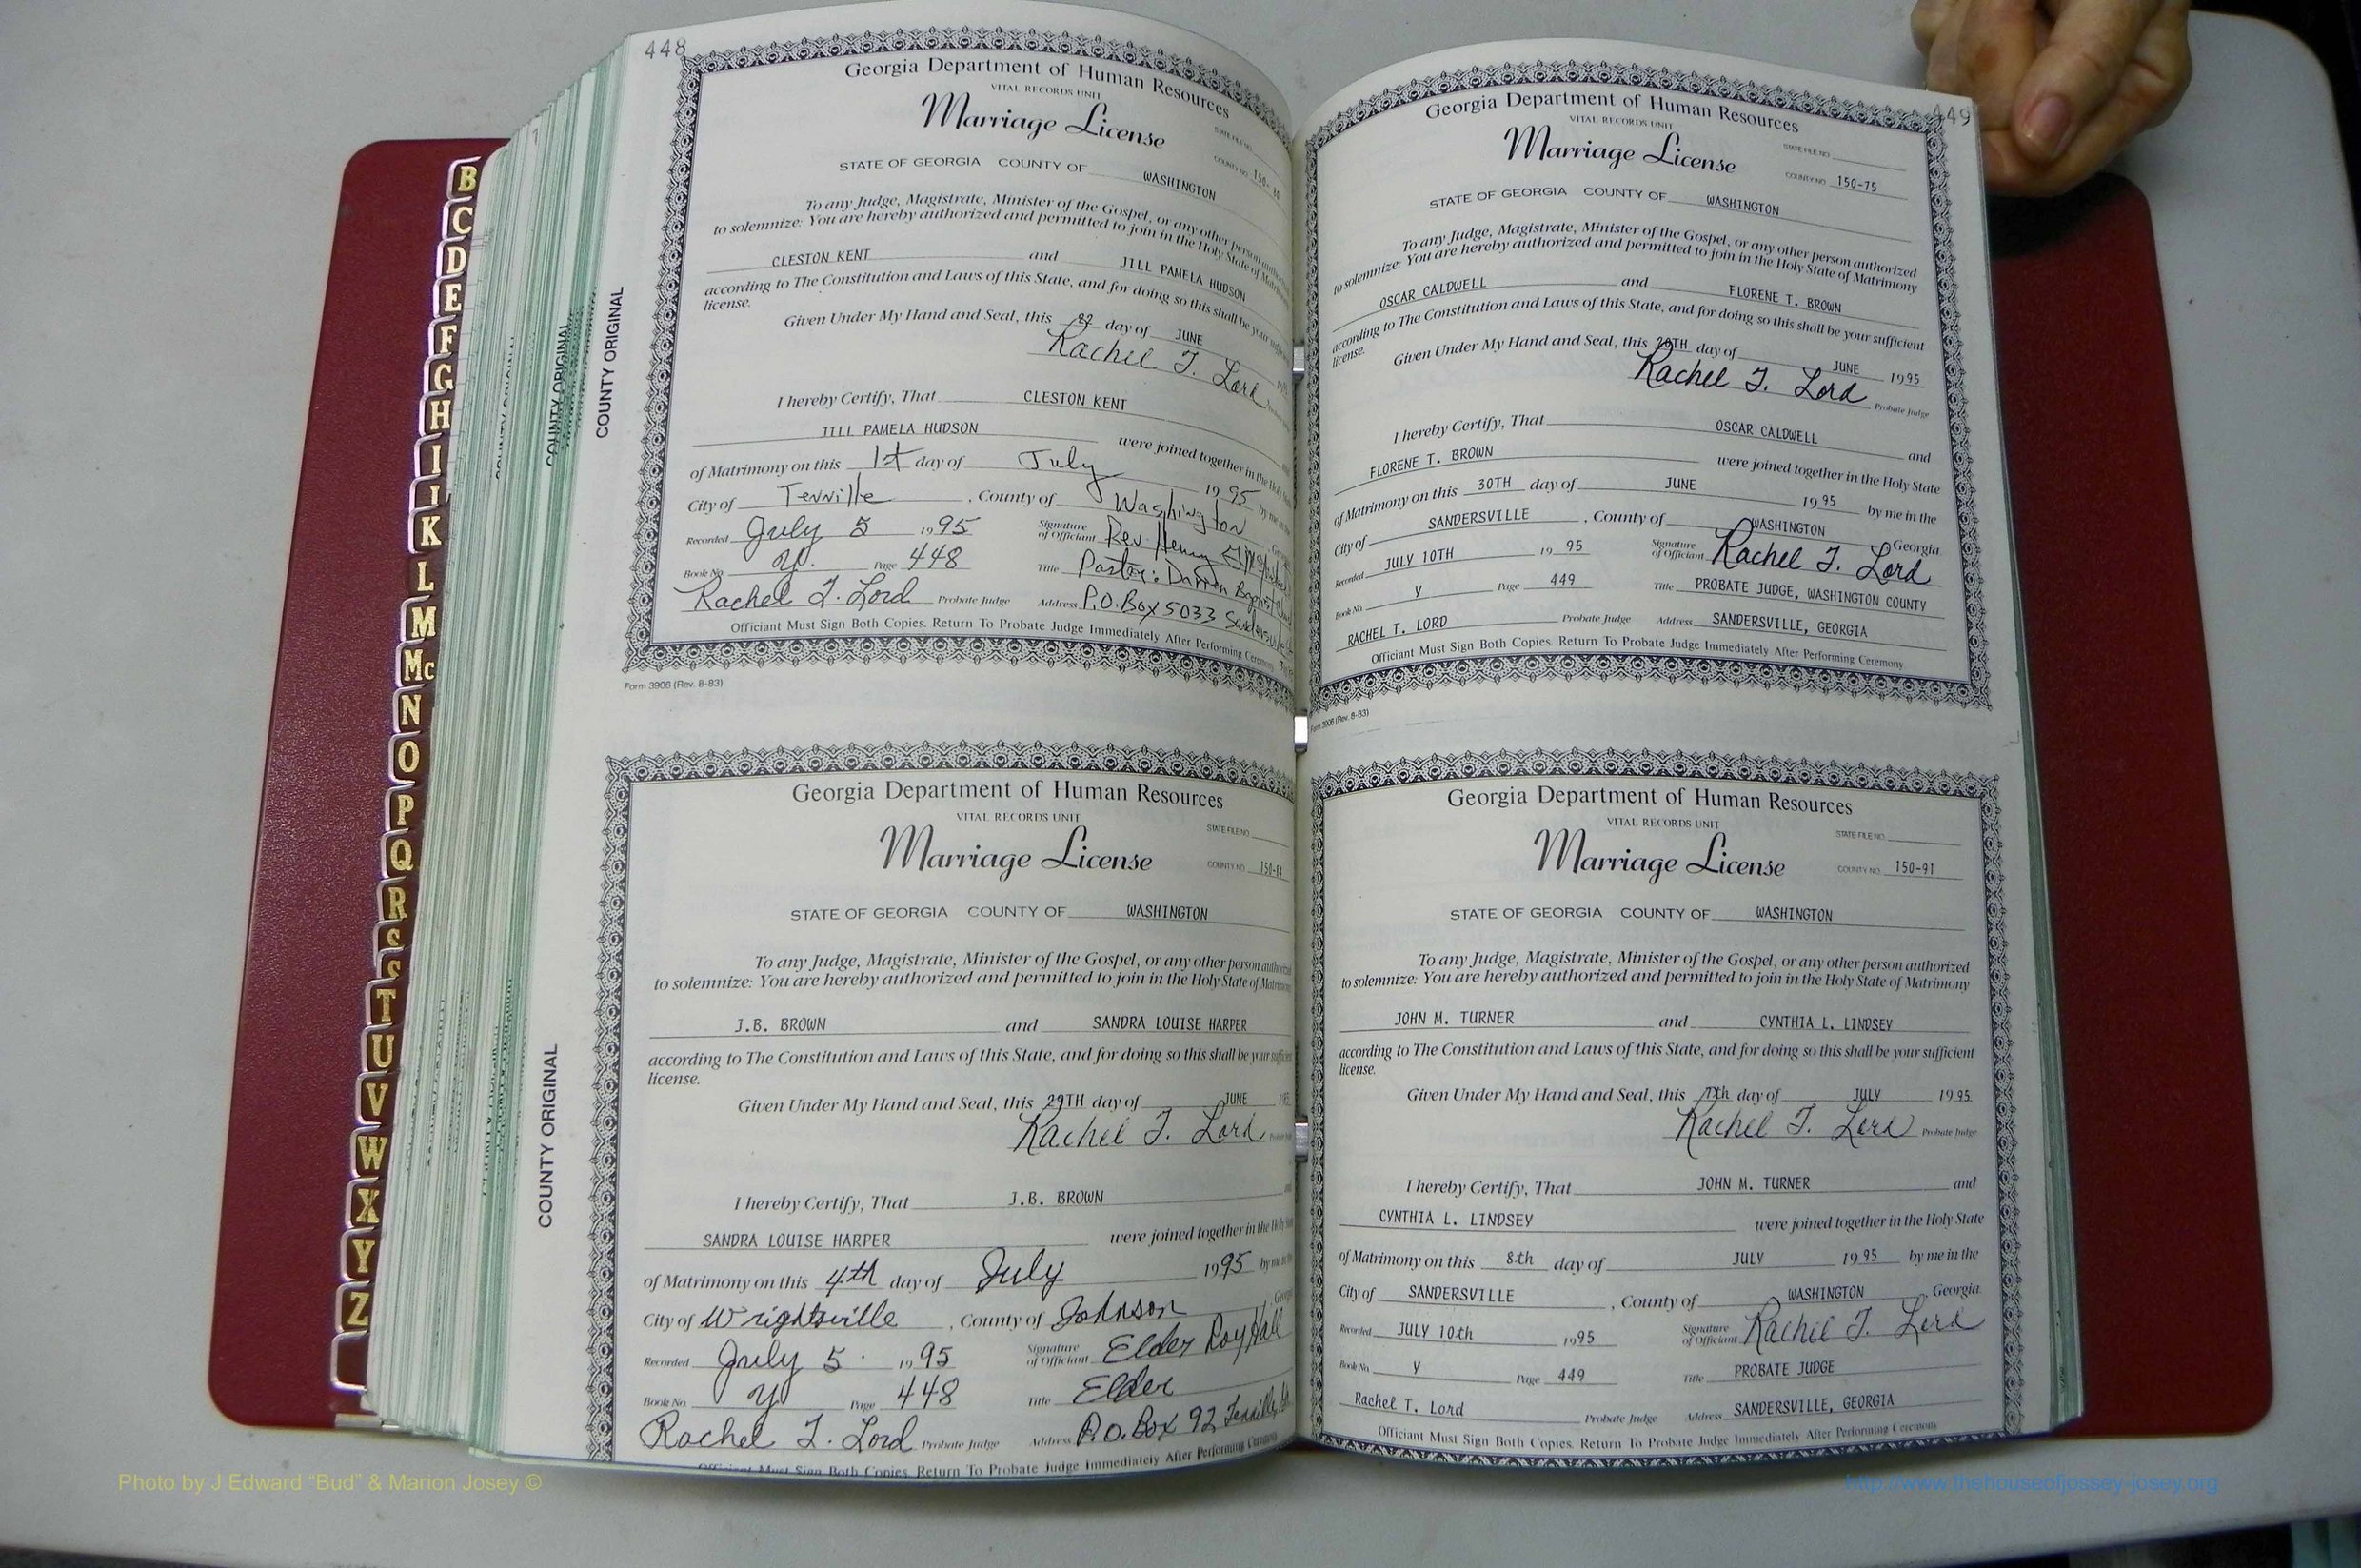 448
Georgia Department of Human Resources
VITAL RECORDS UNIT
Marriage License
STATE FILE NO.
COUNTY NO. 150-
STATE OF GEORGIA COUNTY OF WASHINGTON
To any Judge, Magistrate, Minister of the Gospel, or any other person
to solemnize: You are hereby authorized and permitted to join in the Holy State of
CLESTON KENT and JILL PAMELA HUDSON
according to The Constitution and Laws of this State, and for doing so this shall be your
license.
Given Under My Hand and Seal, this day of JUNE
Rachel T. Lord
I hereby Certify, That CLESTON KENT
JILL PAMELA HUDSON were joined together in the
of Matrimony on this 1st day of July 1995 by me
City of Tennille , County of Washington
Recorded July 5 1995 Signature of Officiant Rev. Henry
Book No. Y. Page 448 Title Pastor: Baptist
Rachel T. Lord Probate Judge Address P.O. Box 5033
Officiant Must Sign Both Copies. Return To Probate Judge Immediately After Performing Ceremony
Form 3906 (Rev. 8-83)
COUNTY ORIGINAL
COUNTY ORIGINAL
Georgia Department of Human Resources
VITAL RECORDS UNIT
Marriage License
STATE FILE NO.
COUNTY NO. 150-
STATE OF GEORGIA COUNTY OF WASHINGTON
To any Judge, Magistrate, Minister of the Gospel, or any other person
to solemnize: You are hereby authorized and permitted to join in the Holy State of
J.B. BROWN and SANDRA LOUISE HARPER
according to The Constitution and Laws of this State, and for doing so this shall be your
license.
Given Under My Hand and Seal, this 29TH day of JUNE
Rachel T. Lord
I hereby Certify, That J.B. BROWN
SANDRA LOUISE HARPER were joined together in the
of Matrimony on this 4th day of July 1995 by me
City of Wrightsville , County of Johnson
Recorded July 5 1995 Signature of Officiant Elder Roy Hall
Book No. Y Page 448 Title Elder
Rachel T. Lord Probate Judge Address P.O. Box 92 Tennille,
Officiant Must Sign Both Copies. Return To Probate Judge Immediately After Performing Ceremony
COUNTY ORIGINAL
449
Georgia Department of Human Resources
VITAL RECORDS UNIT
Marriage License
STATE FILE NO.
COUNTY NO. 150-75
STATE OF GEORGIA COUNTY OF WASHINGTON
To any Judge, Magistrate, Minister of the Gospel, or any other person authorized
to solemnize: You are hereby authorized and permitted to join in the Holy State of Matrimony
OSCAR CALDWELL and FLORENE T. BROWN
according to The Constitution and Laws of this State, and for doing so this shall be your sufficient
license.
Given Under My Hand and Seal, this day of JUNE 1995
Rachel T. Lord Probate Judge
I hereby Certify, That OSCAR CALDWELL and
FLORENE T. BROWN were joined together in the Holy State
of Matrimony on this 30TH day of JUNE 1995 by me in the
City of SANDERSVILLE , County of WASHINGTON Georgia
Recorded JULY 10TH 1995 Signature of Officiant Rachel T. Lord
Book No. Y Page 449 Title PROBATE JUDGE, WASHINGTON COUNTY
RACHEL T. LORD Probate Judge Address SANDERSVILLE, GEORGIA
Officiant Must Sign Both Copies. Return To Probate Judge Immediately After Performing Ceremony
Form 3906 (Rev. 8-83)
Georgia Department of Human Resources
VITAL RECORDS UNIT
Marriage License
STATE FILE NO.
COUNTY NO. 150-91
STATE OF GEORGIA COUNTY OF WASHINGTON
To any Judge, Magistrate, Minister of the Gospel, or any other person authorized
to solemnize: You are hereby authorized and permitted to join in the Holy State of Matrimony
JOHN M. TURNER and CYNTHIA L. LINDSEY
according to The Constitution and Laws of this State, and for doing so this shall be your sufficient
license.
Given Under My Hand and Seal, this 7th day of JULY 1995
Rachel T. Lord Probate Judge
I hereby Certify, That JOHN M. TURNER and
CYNTHIA L. LINDSEY were joined together in the Holy State
of Matrimony on this 8th day of JULY 1995 by me in the
City of SANDERSVILLE , County of WASHINGTON , Georgia
Recorded JULY 10th 1995 Signature of Officiant Rachel T. Lord
Book No. Y Page 449 Title PROBATE JUDGE
Rachel T. Lord Probate Judge Address SANDERSVILLE, GEORGIA
Officiant Must Sign Both Copies. Return To Probate Judge Immediately After Performing Ceremony
B
C
D
E
F
G
H
I
J
K
L
M
Mc
N
O
P
Q
R
S
T
U
V
W
X
Y
Z
Photo by J Edward “Bud” & Marion Josey ©
http://www.thehouseofjossey-josey.org